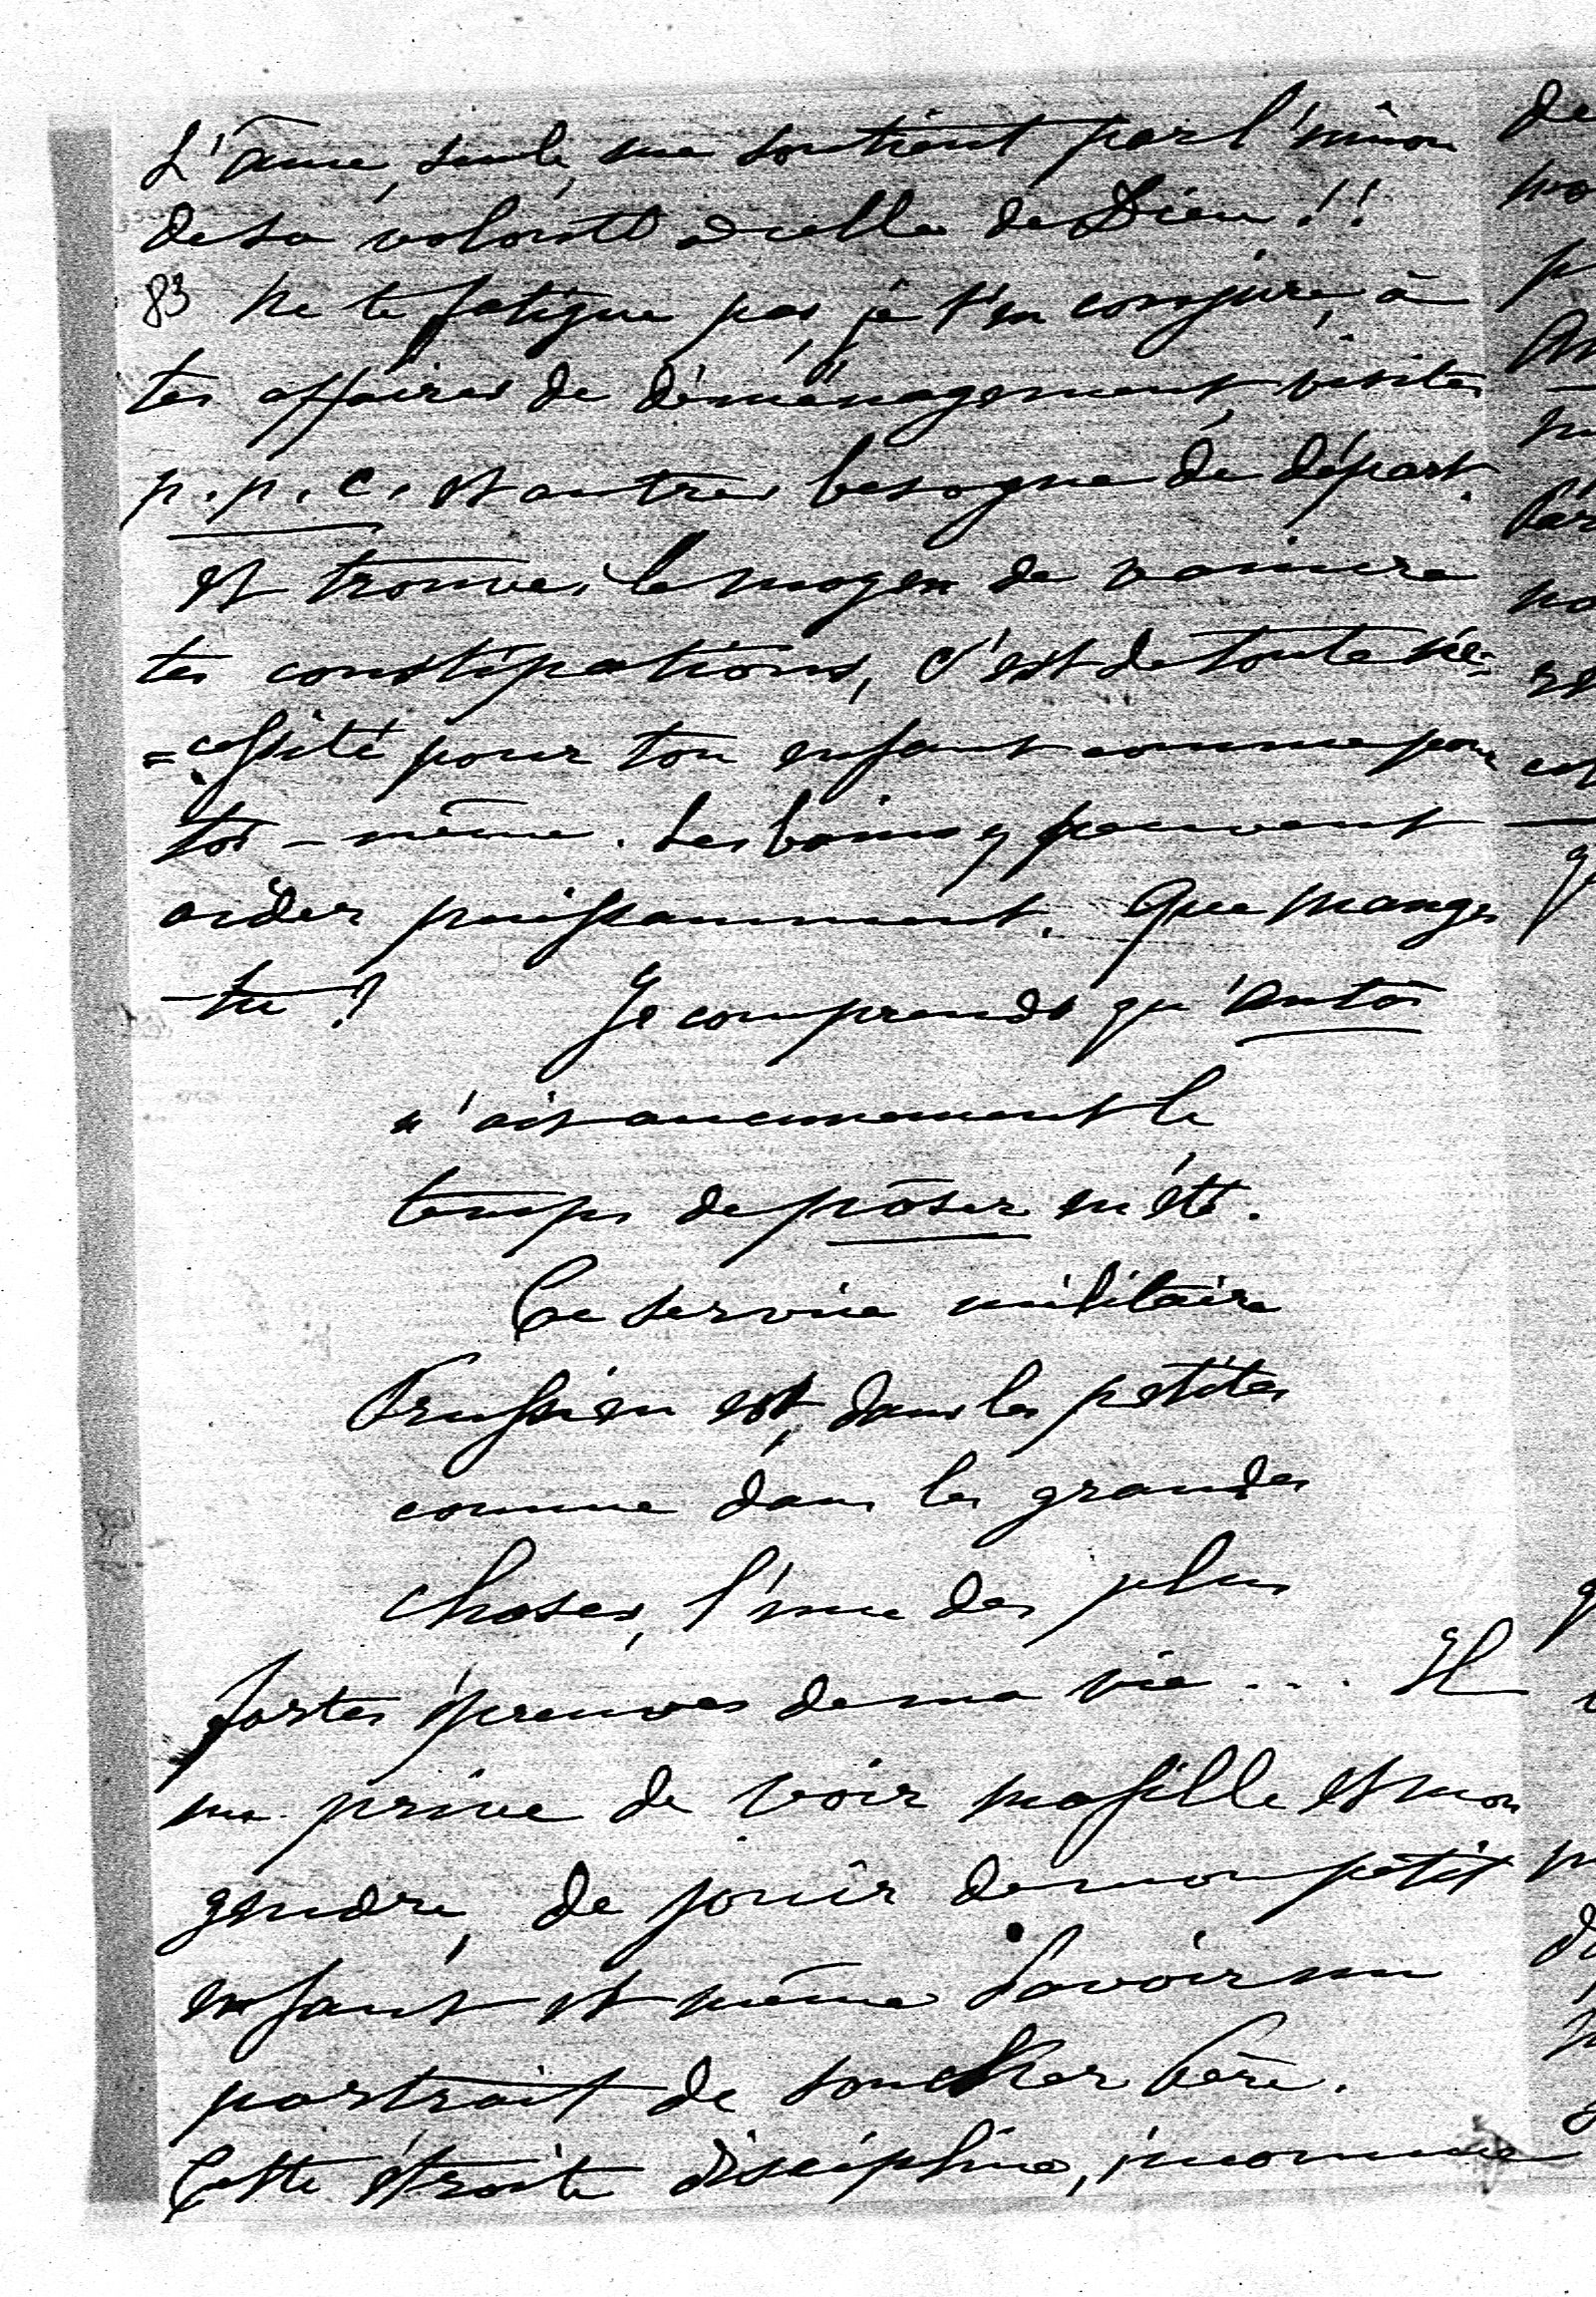 L'âme, seule, me soutient par l'union
de sa volonté à celle de Dieu !!
83 Ne te fatigue pas, je t'en conjure, à
tes affaires de déménagement, visites
p. p. c. et autres besogne de départ.
et trouves le moyen de vaincre
tes constipations, c'est de toute né=
=cessité pour ton enfant comme pour
toi-même. Les bains y peuvent
aider puissamment. Que manges
-tu ? Je comprends qu'Antoi
n'ait aucunement le
temps de pôser en été.
Ce service militaire
Prussien est, dans les petites
comme dans les grandes
choses, l'une des plus
fortes épreuves de ma vie .... Il
me prive de voir ma fille et mon
gendre, de jouir de mon petit
enfant et même d'avoir un
portrait de son cher Père.
Cette étroite discipline, inconnue